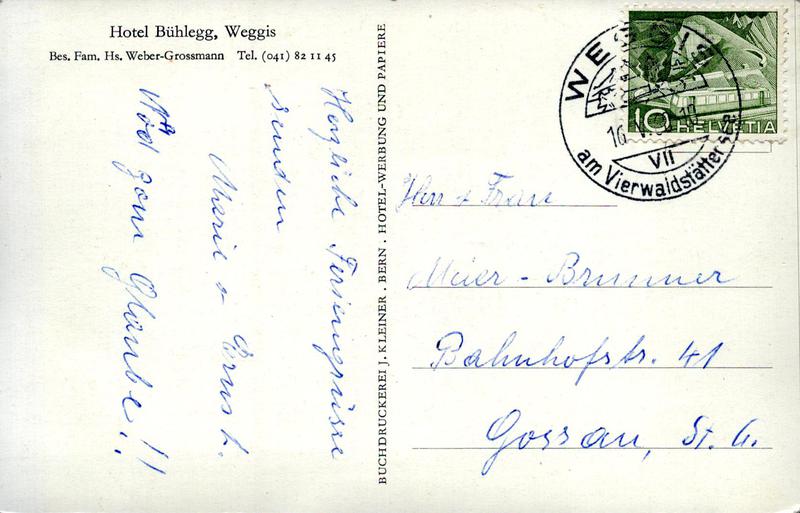 Hotel Bühlegg, Weggis
Bes. Fam. Hs. Weber-Grossmann Tel. (041) 82 11 45
Herzliche Feriengrüsse
senden
Marie & Ernst.
Nöd zom Glaube!!
BUCHDRUCKEREI J. KLEINER . BERN . HOTEL-WERBUNG UND PAPIERE
WEGGIS
VII
am Vierwaldstätter See
10 HELVETIA
Herr & Frau
Meier - Brunner
Bahnhofstr. 41
Gossau, St. G.